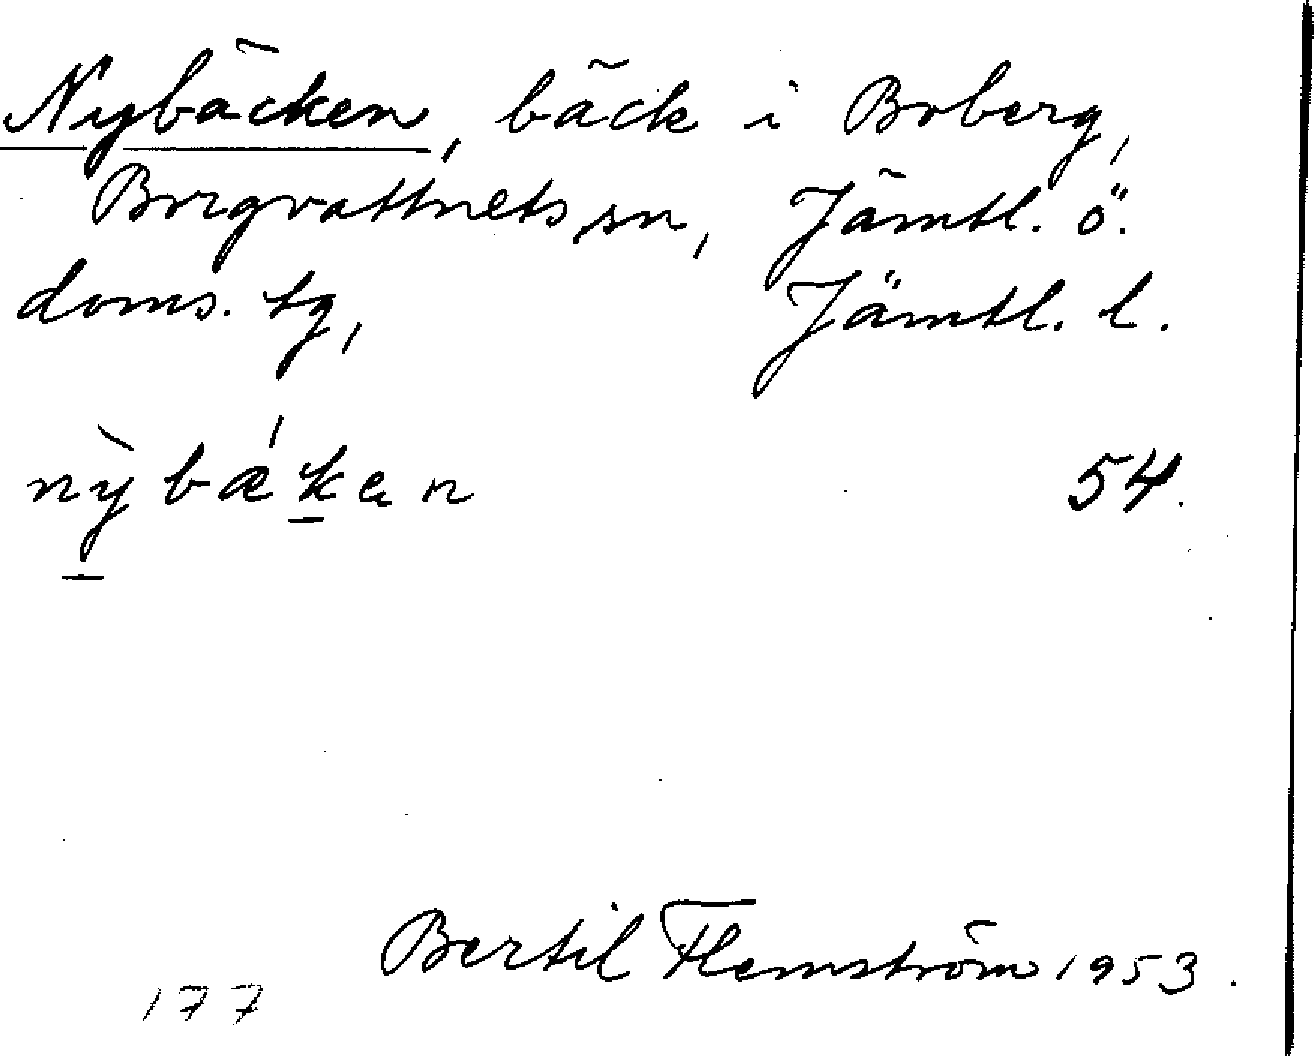 Nybäcken, bäck i Boberg,
Borgvattnets sn, Jämtl. ö.
doms. tg, Jämtl. l.
nỳbǽken 54.
Bertil Flemström 1953.
177